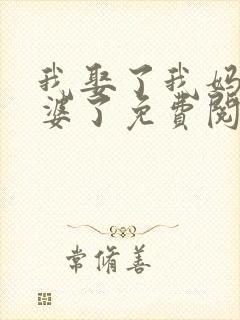 我娶了我妈
婆了免费阅
常脩善